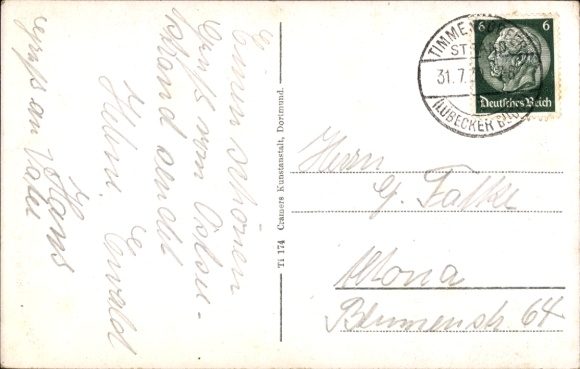 Einen schönen
Gruß vom Ostsee-
strand sendet
Helmi. Ewald
Hans
Gruß an Vater
Ti 174 Cramers Kunstanstalt, Dortmund.
TIMMENDORFER
STRAND
31.7.
(LÜBECKER BUCHT)
6 6
Deutsches Reich
Herrn
G. Falke
Altona
Blumenstr 64